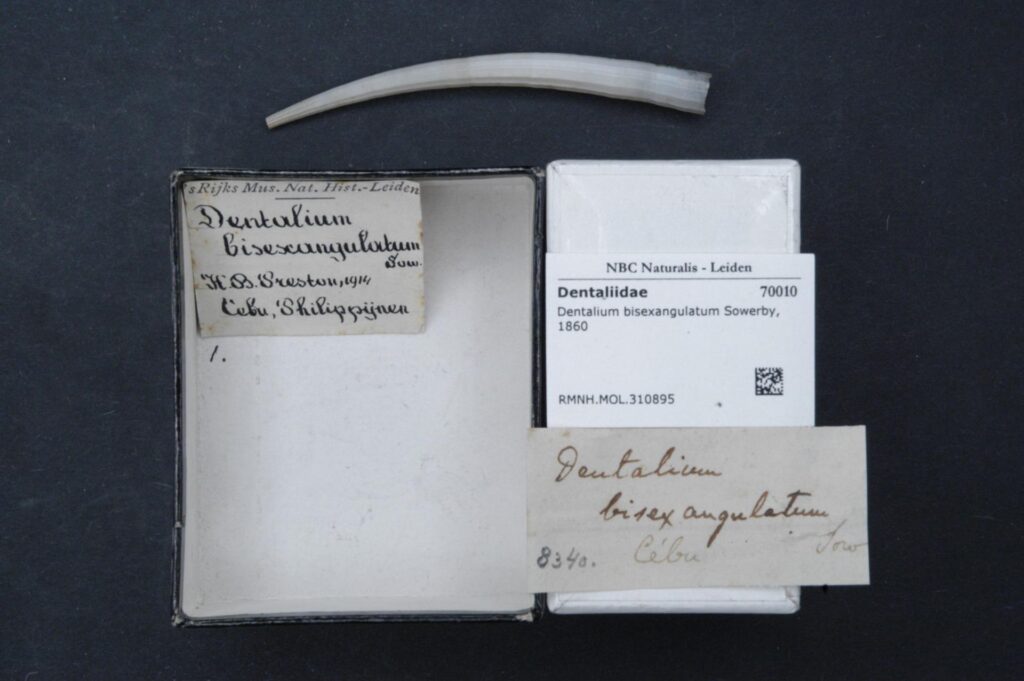 's Rijks Mus. Nat. Hist.-Leiden
Dentalium
bisexangulatum
Sow.
H. B. Preston, 1914
Cebu, Philippijnen
1.
NBC Naturalis - Leiden
Dentaliidae 70010
Dentalium bisexangulatum Sowerby,
1860
RMNH.MOL.310895
Dentalium
bisexangulatum
8340. Cébu Sow